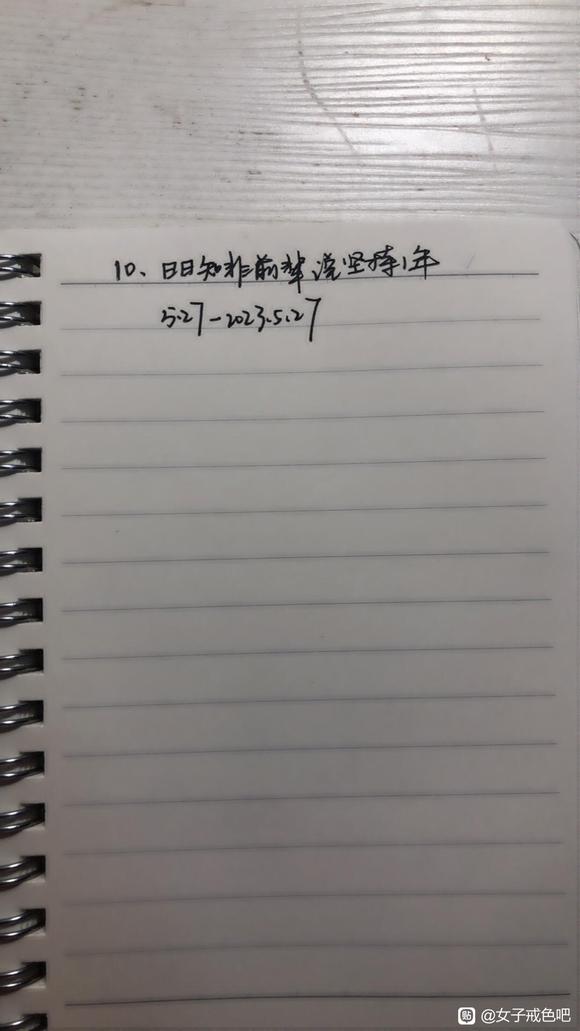 10、日日知非前辈说坚持1年
5.27-2023.5.27
贴 @女子戒色吧